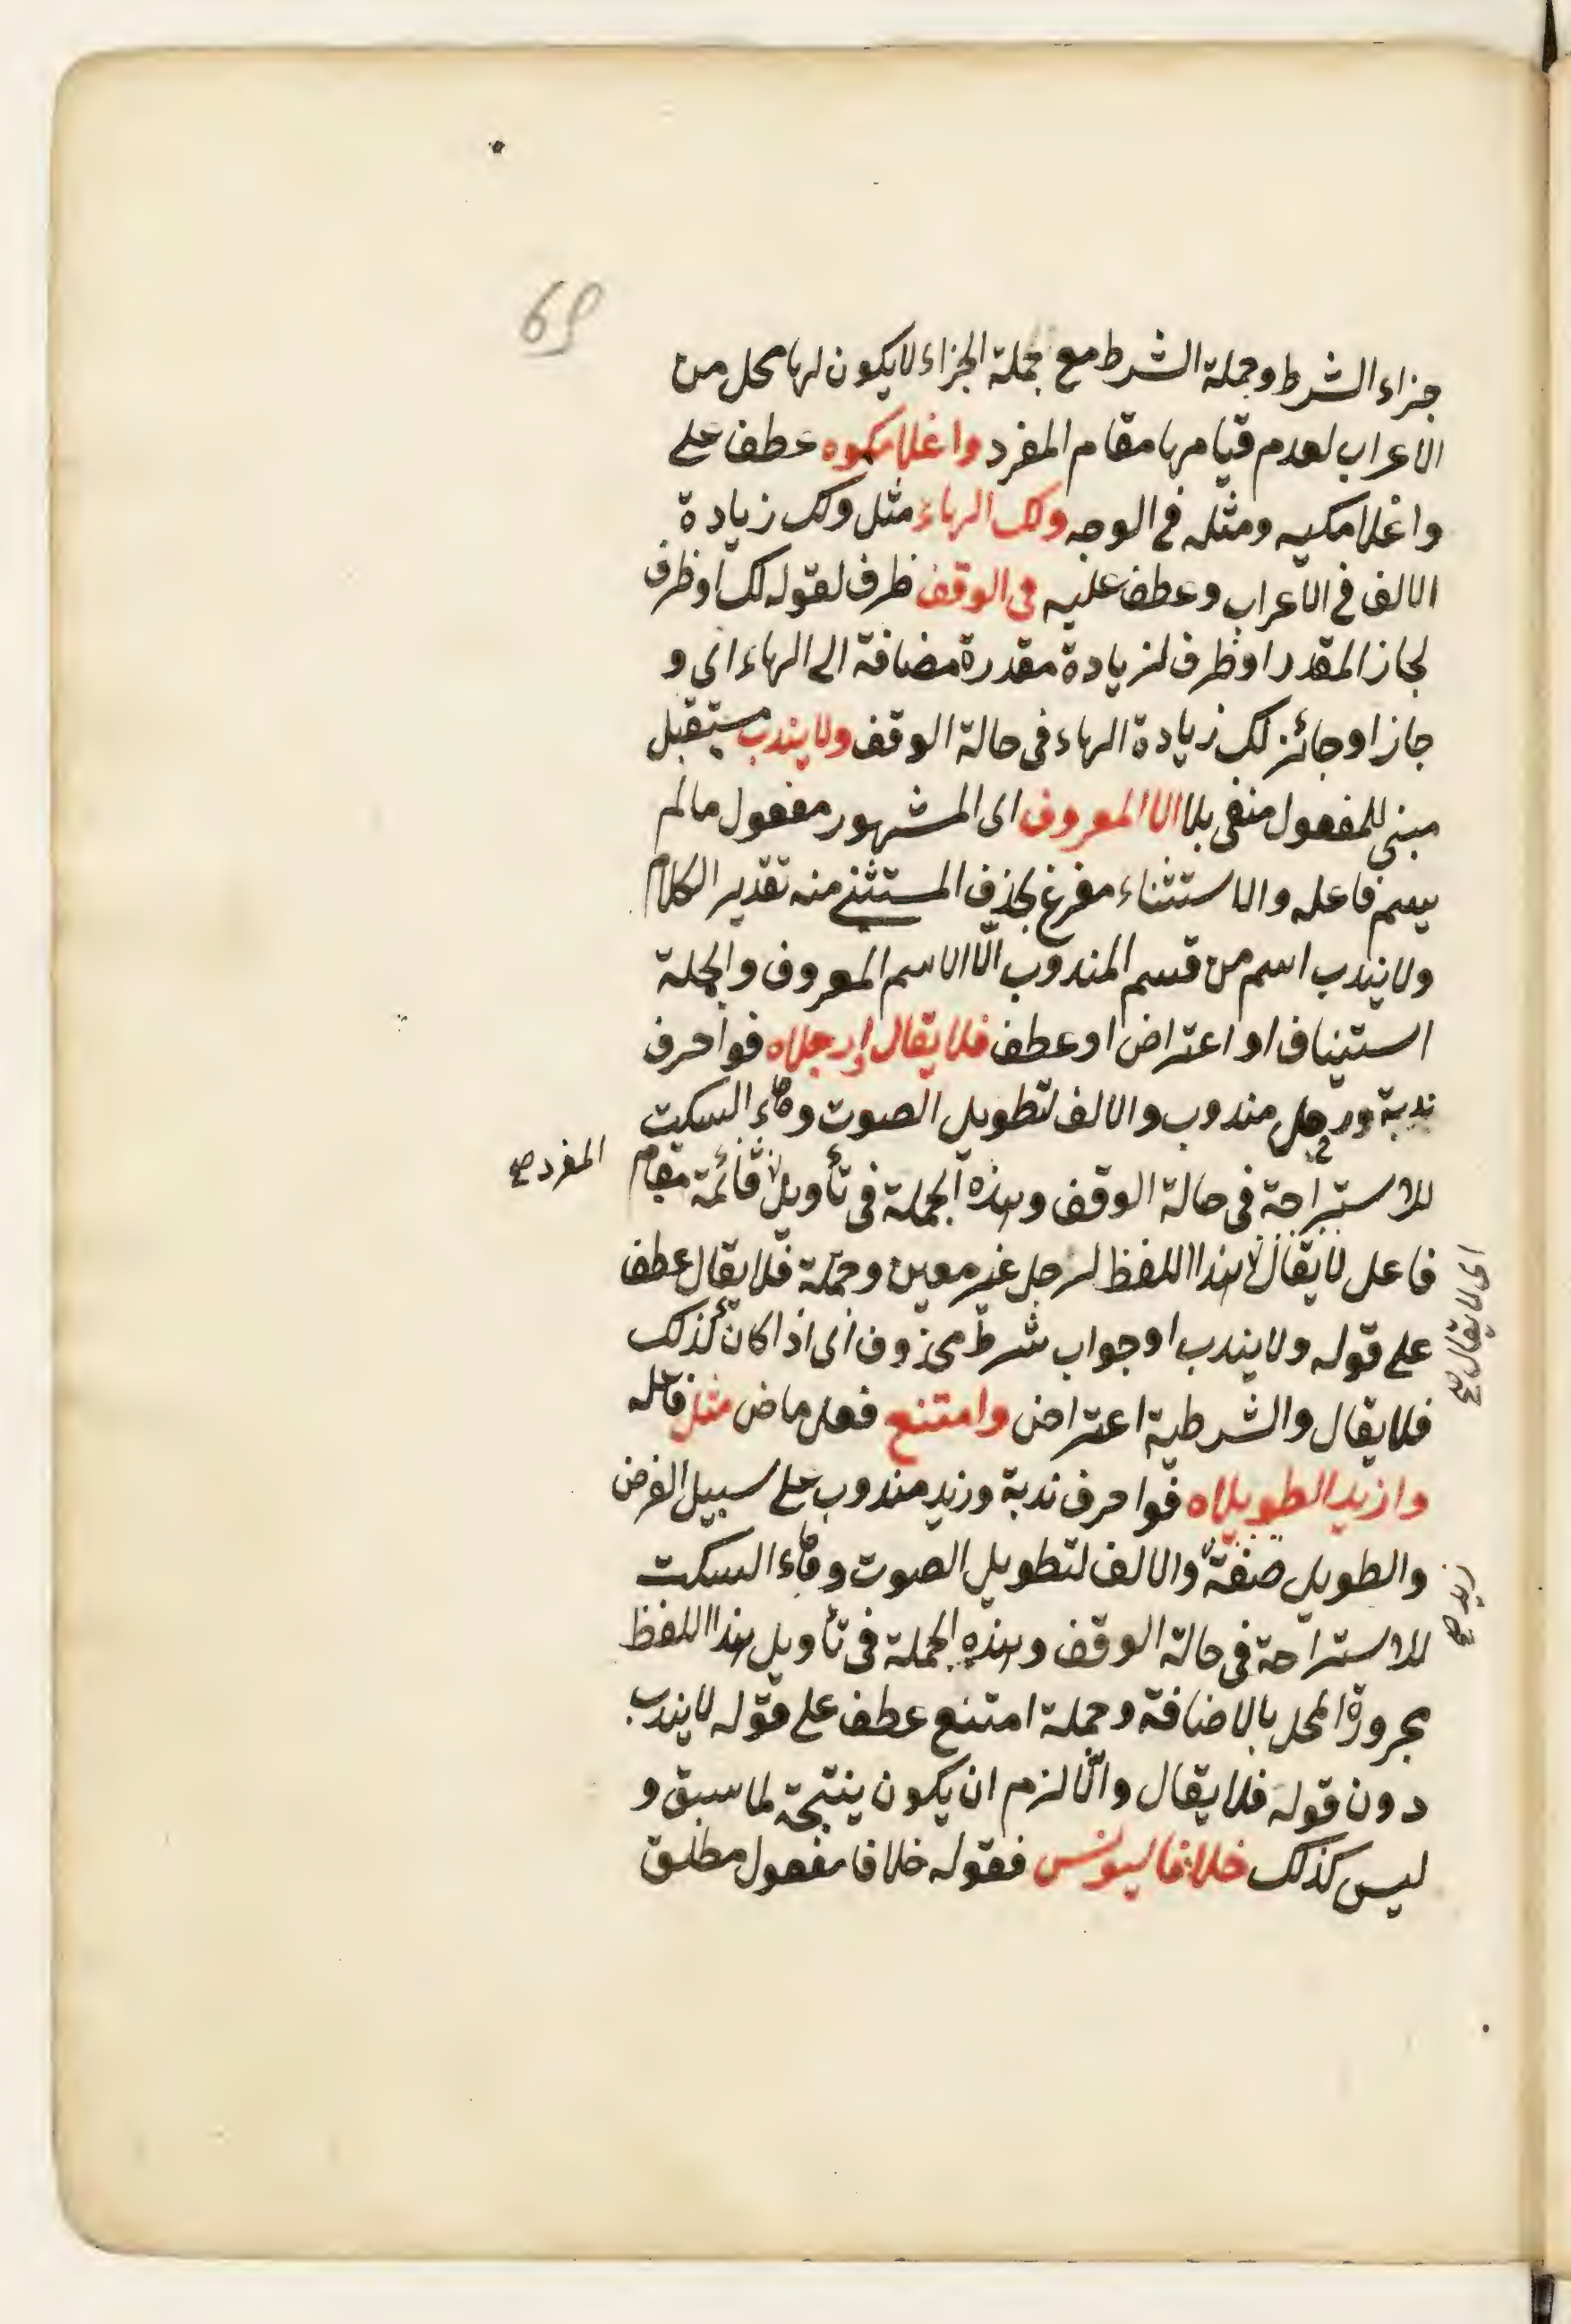 69
جزاء الشرط وجملة الشرط مع جملة الجزاء لا يكون لها محل من
الاعراب لعدم قيامها مقام المفرد واغلامكموه عطف على
واغلامكيه ومثله في الوجه ولك الهاء مثل ولك زيادة
الالف في الاعراب وعطف عليه في الوقف ظرف لقوله لك او ظرف
لجاز المقدر او ظرف لزيادة مقدرة مضافة الى الهاء اى و
جاز او جائز لك زيادة الهاء فى حالة الوقف ولا يندب مستقبل
مبني للمفعول منفى بلا الا المعروف اى المشهور مفعول ما لم
يسم فاعله والاستثناء مفرغ بحذف المستثنى منه تقدير الكلام
ولا يندب اسم من قسم المندوب الّا الاسم المعروف والجملة
استيناف او اعتراض او عطف فلا يقال وارجلاه فوا حرف
ندبة ورجل مندوب والالف لتطويل الصوت وهاء السكت
للاستراحة فى حالة الوقف وهذه الجملة فى تأويل قائمة مقام المفرد صح
فاعل لا يقال هذا اللفظ لرجل غير معين وجملة فلا يقال عطف
اى لا يقال صح
على قوله ولا يندب او جواب شرط محذوف اى اذا كان كذلك
فلا يقال والشرطية اعتراض وامتنع فعل ماض مثل فاعله
وازيد الطويلاه فوا حرف ندبة وزيد مندوب على سبيل الفرض
والطويل صفة والالف لتطويل الصوت وهاء السكت
زيد صح
للاستراحة فى حالة الوقف وهذه الجملة فى تأويل هذا اللفظ
مجرورة المحل بالاضافة وجملة امتنع عطف على قوله لا يندب
دون قوله فلا يقال والّا لزم ان يكون ينتجة لما سبق و
ليس كذلك خلافا ليونس فقوله خلافا مفعول مطلق